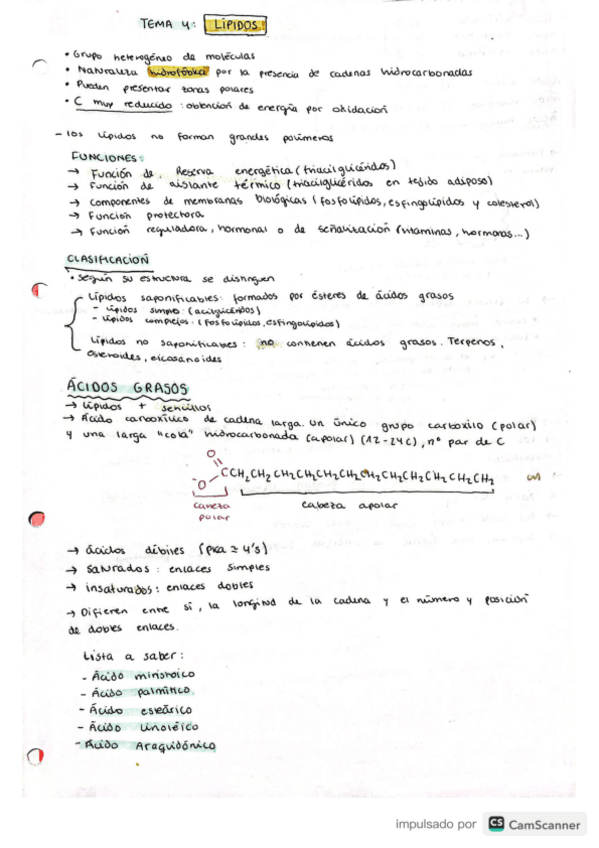 TEMA 4: LÍPIDOS.
• Grupo heterogéneo de moléculas
• Naturaleza hidrofóbica por la presencia de cadenas hidrocarbonadas
• Pueden presentar zonas polares
• C muy reducido: obtención de energía por oxidación
- los lípidos no forman grandes polímeros
FUNCIONES:
→ Función de. Reserva energética (triacilglicéridos)
→ Función de aislante térmico (triacilglicéridos en tejido adiposo)
→ Componentes de membranas biológicas (fosfolípidos, esfingolípidos y colesterol)
→ Función protectora
→ Función reguladora, hormonal o de señalización (vitaminas, hormonas...)
CLASIFICACIÓN
• Según su estructura se distinguen
Lípidos saponificables: formados por ésteres de ácidos grasos
- Lípidos simples: (acilglicéridos)
- Lípidos complejos: (fosfolípidos, esfingolípidos)
Lípidos no saponificables: no contienen ácidos grasos. Terpenos,
esteroides, eicosanoides
ÁCIDOS GRASOS
→ Lípidos + sencillos
→ Ácido carboxílico de cadena larga. Un único grupo carboxilo (polar)
y una larga "cola" hidrocarbonada (apolar) (12-24C), nº par de C
O
CCH2CH2CH2CH2CH2CH2CH2CH2CH2CH2CH2CH2CH2
-O
cabeza polar
cabeza apolar
→ ácidos débiles (pKa ≃ 4'5)
→ saturados: enlaces simples
→ insaturados: enlaces dobles
→ Difieren entre sí, la longitud de la cadena y el número y posición
de dobles enlaces.
Lista a saber:
- Ácido mirístoico
- Ácido palmítico.
- Ácido esteárico
- Ácido linoléico
- Ácido Araquidónico
impulsado por CS CamScanner